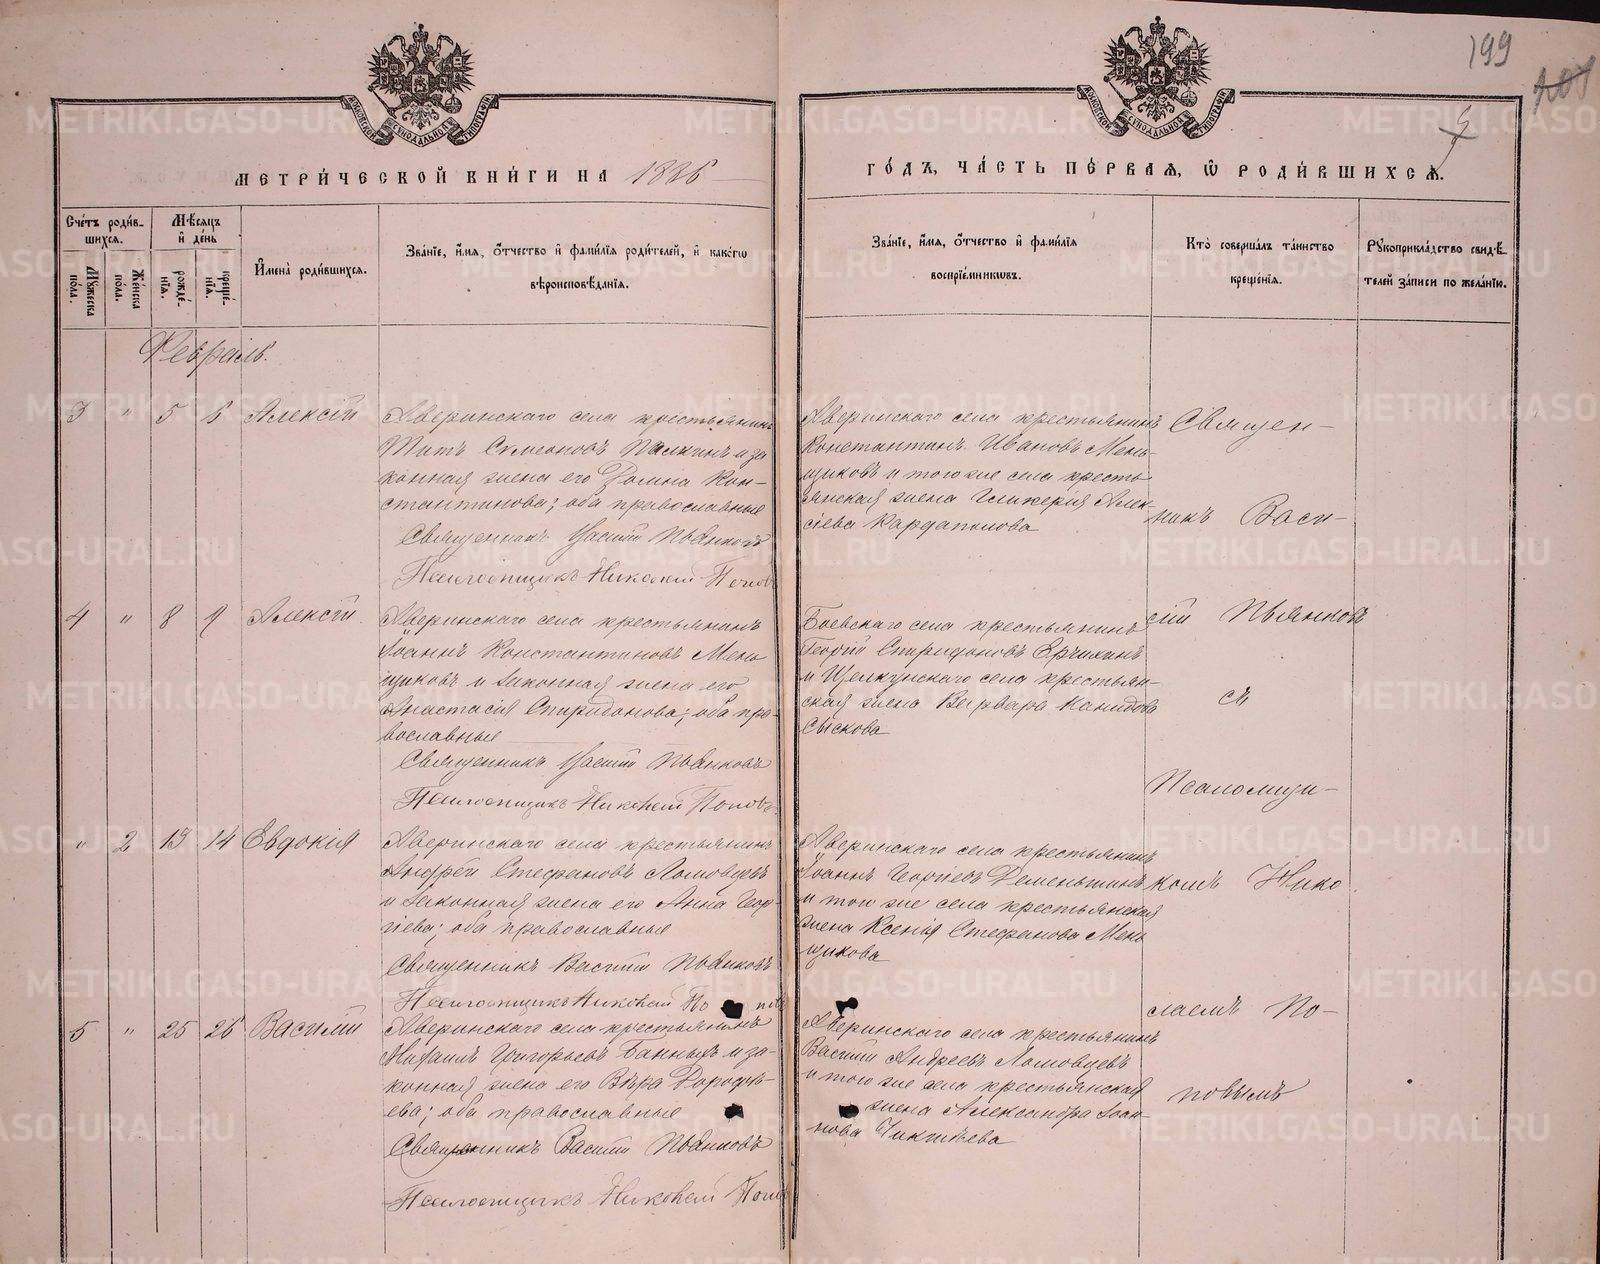 199
МЕТРИ́ЧЕСКОЙ КНИ́ГИ НА 1886
ГО́ДЪ, ЧА́СТЬ ПЕ́РВАѦ, Ѡ РОДИ́ВШИХСѦ.
Сче́тъ роди́в-
шихся.
Мѣ́сяцъ
и́ де́нь
Му́жеска по́ла.
Же́нска по́ла.
рожде́-нїя.
креще́-нїя.
И҆мена̀ роди́вшихся.
Зва́нїе, и҆́мя, ѻ҆́тчество и҆ фами́лїя роди́телей, и҆ како́гѡ
вѣроисповѣ́данїя.
Зва́нїе, и҆́мя, ѻ҆́тчество и҆ фами́лїя
воспрїе́мниковъ.
Кто̀ соверша́лъ та́инство
креще́нїя.
Рꙋкоприкла́дство свидѣ́-
телей за́писи по жела́нїю.
Февраль.
3 " 5 6 Алексій
Аверинскаго села крестьянинъ
Титъ Симеоновъ Палкинъ и за
конная жена его Домна Кон-
стантинова; оба православные
Священникъ Василій Пьянковъ
Псаломщикъ Николай Поповъ
Аверинскаго села крестьянинъ
Константинъ Ивановъ Мень-
щиковъ и того же села кресть
янская жена Гликерія Алек-
сіева Кардаполова
4 " 8 9 Алексій
Аверинскаго села крестьянинъ
Іоаннъ Константиновъ Мень
щиковъ и законная жена его
Анастасія Спиридонова; оба пра-
вославные
Священникъ Василій Пьянковъ
Псаломщикъ Николай Поповъ
Боевскаго села крестьянинъ
Георгій Спиридоновъ
и Щелкунскаго села крестьян-
ская жена Варвара
Сыскова
" 2 13 14 Евдокія
Аверинскаго села крестьянинъ
Андрей Стефановъ Ломовцевъ
и законная жена его Анна Геор-
гіева; оба православные
Священникъ Василій Пьянковъ
Псаломщикъ Николай По повъ
Аверинскаго села крестьянинъ
Іоаннъ Георгіевъ Деменьшинъ
и того же села крестьянская
жена Ксенія Стефанова Мень
щикова
5 " 25 26 Василій
Аверинскаго села крестьянинъ
Михаилъ Григорьевъ Банныхъ и за-
конная жена его Вѣра Дорофѣ-
ева; оба православные
Священникъ Василій Пьянковъ
Псаломщикъ Николай Поповъ
Аверинскаго села крестьянинъ
Василій Андреевъ Ломовцевъ
и того же села крестьянская
жена Александра Іоан-
нова Чикишева
Священ-
никъ Васи-
лій Пьянковъ
съ
Псаломщи-
комъ Нико
лаемъ По-
повымъ
METRIKI.GASO-URAL.RU